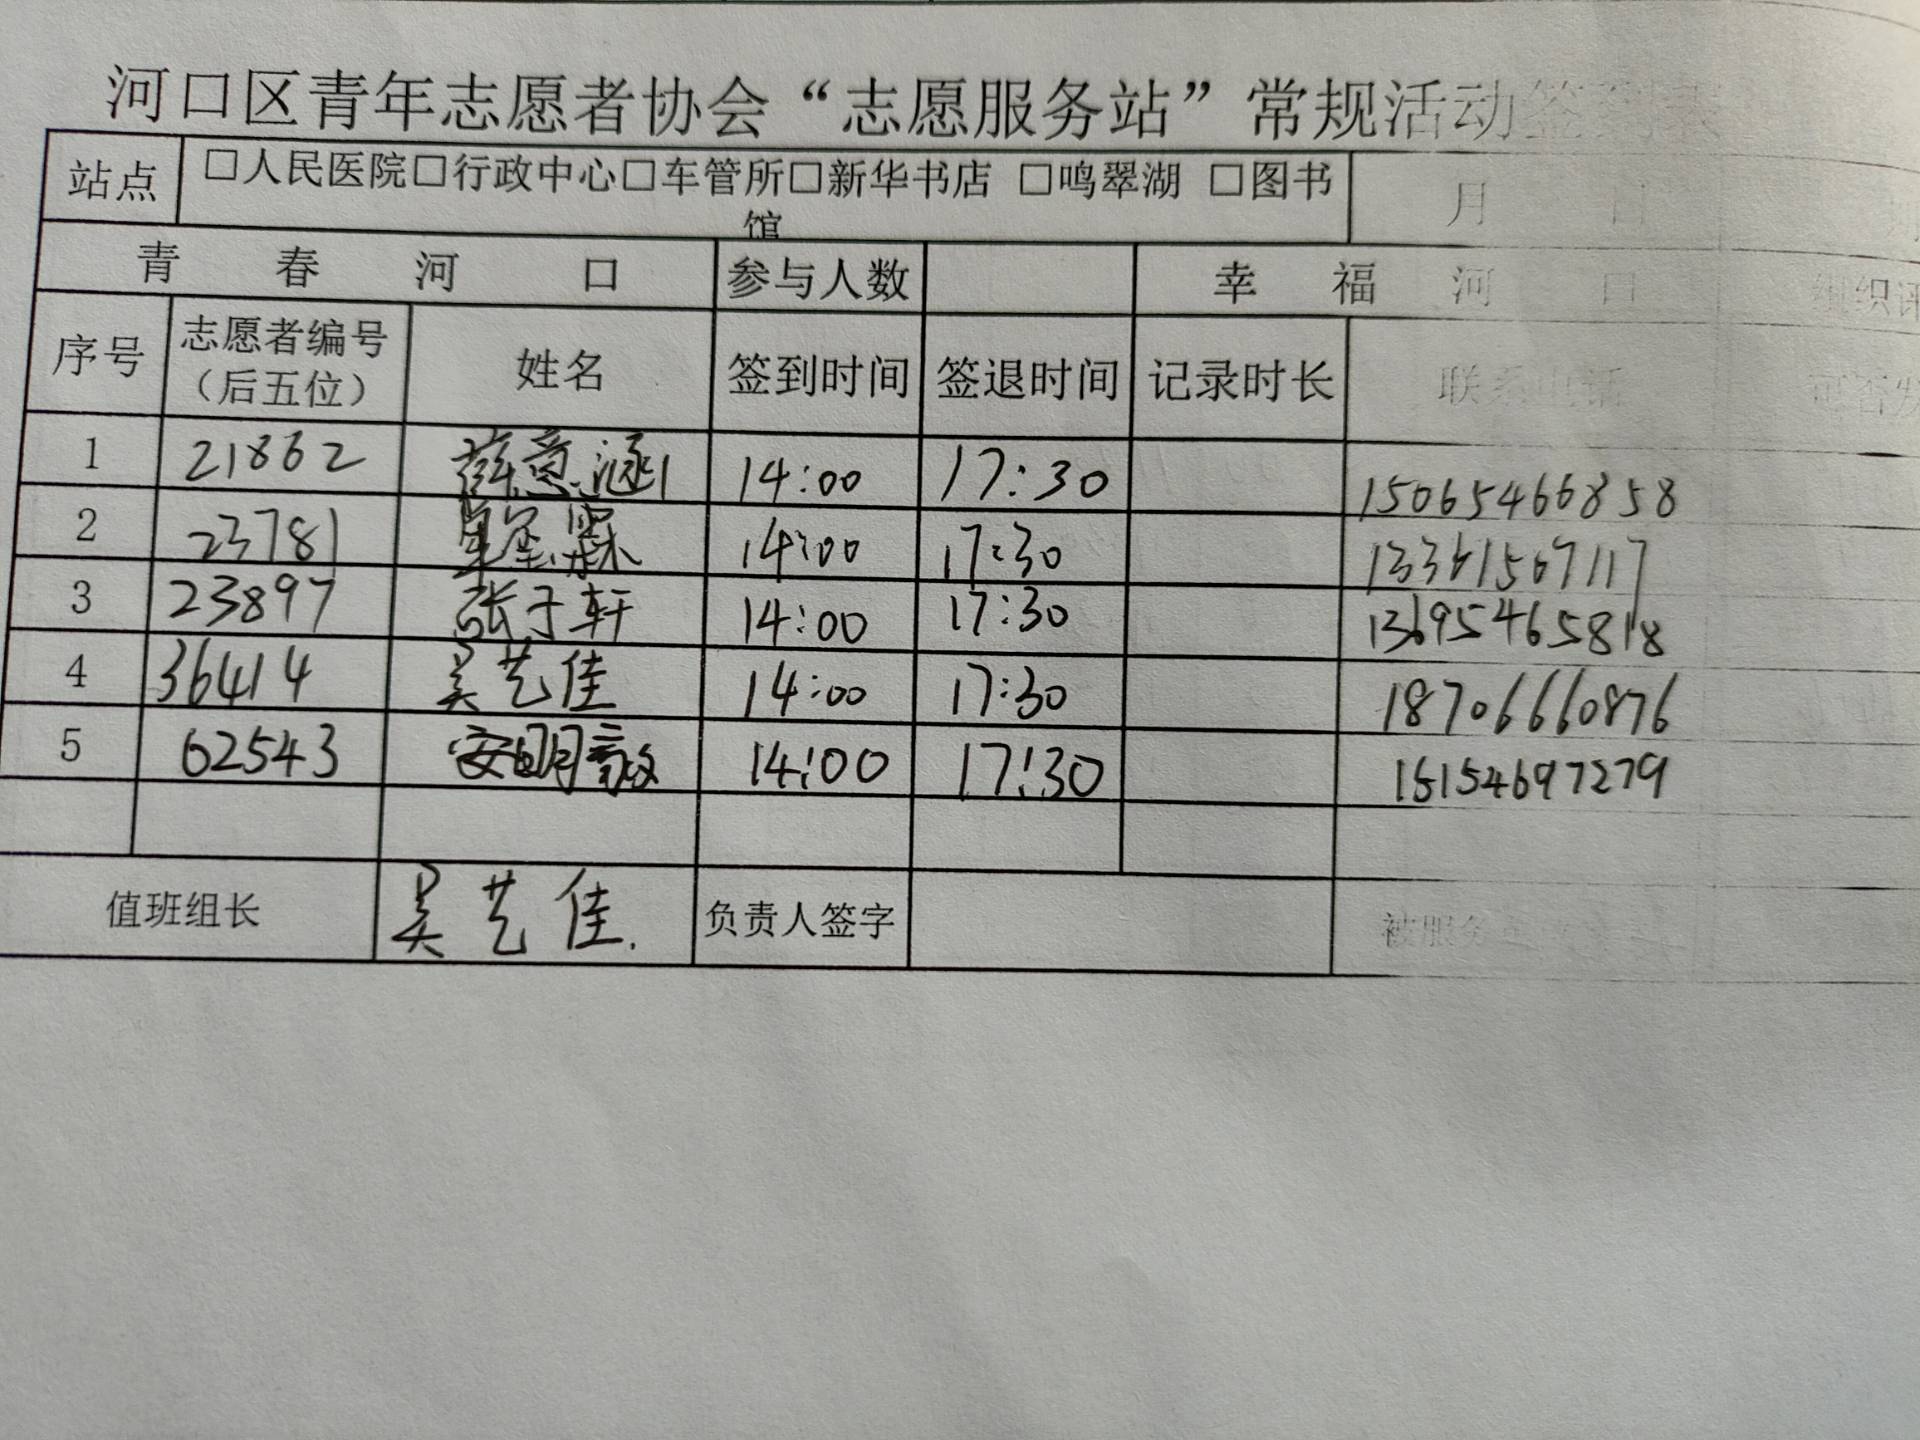 河口区青年志愿者协会“志愿服务站”常规活动签到表
站点 □人民医院□行政中心□车管所□新华书店 □鸣翠湖 □图书馆 月 日
青春河口 参与人数 幸福河口 组织评
序号 志愿者编号（后五位） 姓名 签到时间 签退时间 记录时长 联系电话 可否发
1 21862 薛意涵 14:00 17:30 15065466858
2 23781 14:00 17:30 13361567117
3 23897 张子轩 14:00 17:30 13695465818
4 36414 吴艺佳 14:00 17:30 18706660876
5 62543 安明 14:00 17:30 15154697279
值班组长 吴艺佳. 负责人签字 被服务